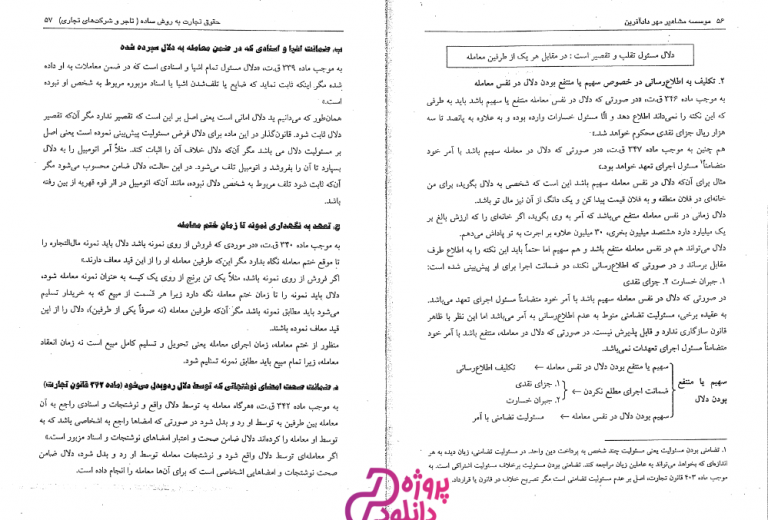 ۵۶ موسسه مشاهیر مهر دادآفرین
دلال مسئول تقلب و تقصیر است : در مقابل هر یک از طرفین معامله
۲. تکلیف به اطلاع‌رسانی در خصوص سهیم یا منتفع بودن دلال در نفس معامله
به موجب ماده ۳۴۶ ق.ت، «در صورتی که دلال در نفس معامله منتفع یا سهیم باشد باید به طرفی
که این نکته را نمی‌داند اطلاع دهد و الّا مسئول خسارات وارده بوده و به علاوه به پانصد تا سه
هزار ریال جزای نقدی محکوم خواهد شد.»
هم چنین به موجب ماده ۳۴۷ ق.ت، «در صورتی که دلال در معامله سهیم باشد با آمر خود
متضامناً۱ مسئول اجرای تعهد خواهد بود.»
مثال برای آن‌که دلال در نفس معامله سهیم باشد این است که شخصی به دلال بگوید، برای من
خانه‌ای در فلان منطقه و به فلان قیمت پیدا کن و یک دانگ از آن نیز مال تو باشد.
دلال زمانی در نفس معامله منتفع می‌باشد که آمر به وی بگوید، اگر خانه‌ای را که ارزش بالغ بر
یک میلیارد دارد هشتصد میلیون بخری، ۳۰ میلیون علاوه بر اجرت به تو پاداش می‌دهم.
دلال می‌تواند هم در نفس معامله منتفع باشد و هم سهیم اما حتماً باید این نکته را به اطلاع طرف
مقابل برساند و در صورتی که اطلاع‌رسانی نکند، دو ضمانت اجرا برای او پیش‌بینی شده است:
۱. جبران خسارت ۲. جزای نقدی
در صورتی که دلال در نفس معامله سهیم باشد با آمر خود متضامناً مسئول اجرای تعهد می‌باشد.
به عقیده برخی، مسئولیت تضامنی منوط به عدم اطلاع‌رسانی به آمر می‌باشد اما این نظر با ظاهر
قانون سازگاری ندارد و قابل پذیرش نیست. در صورتی که دلال در معامله، منتفع باشد با آمر خود
متضامناً مسئول اجرای تعهدات نمی‌باشد.
سهیم یا منتفع بودن دلال در نفس معامله ← تکلیف اطلاع‌رسانی
سهیم یا منتفع بودن دلال
ضمانت اجرای مطلع نکردن ← ۱. جزای نقدی
۲. جبران خسارت
سهیم بودن دلال در نفس معامله ← مسئولیت تضامنی با آمر
۱. تضامنی بودن مسئولیت یعنی مسئولیت چند شخص به پرداخت دین واحد. در مسئولیت تضامنی، زیان دیده به هر
اندازه‌ای که بخواهد می‌تواند به عاملین زیان مراجعه کند. تضامنی بودن مسئولیت برخلاف مسئولیت اشتراکی است. به
موجب ماده ۴۰۳ قانون تجارت، اصل بر عدم مسئولیت تضامنی است مگر تصریح خلاف در قانون یا قرارداد.
حقوق تجارت به روش ساده ( تاجر و شرکت‌های تجاری) ۵۷
ب. ضمانت اشیا و اسنادی که در ضمن معامله به دلال سپرده شده
به موجب ماده ۳۳۹ ق.ت، «دلال مسئول تمام اشیا و اسنادی است که در ضمن معاملات به او داده
شده مگر اینکه ثابت نماید که ضایع یا تلف‌شدن اشیا یا اسناد مزبوره مربوط به شخص او نبوده
است.»
همان‌طور که می‌دانیم ید دلال امانی است یعنی اصل بر این است که تقصیر ندارد مگر آن‌که تقصیر
دلال ثابت شود. قانون‌گذار در این ماده برای دلال فرض مسئولیت پیش‌بینی نموده است یعنی اصل
بر مسئولیت دلال می باشد مگر آن‌که دلال خلاف آن را اثبات کند. مثلاً آمر اتومبیل را به دلال
بسپارد تا آن را بفروشد و اتومبیل تلف می‌شود. در این حالت، دلال ضامن محسوب می‌شود مگر
آن‌که ثابت شود تلف مربوط به شخص دلال نبوده، مانند آن‌که اتومبیل در اثر قوه قهریه از بین رفته
باشد.
ج. تعهد به نگهداری نمونه تا زمان ختم معامله
به موجب ماده ۳۴۰ ق.ت، «در موردی که فروش از روی نمونه باشد دلال باید نمونه مال‌التجاره را
تا موقع ختم معامله نگاه بدارد مگر این‌که طرفین معامله او را از این قید معاف دارند.»
اگر فروش از روی نمونه باشد، مثلاً یک تن برنج از روی یک کیسه به عنوان نمونه معامله شود،
دلال باید نمونه را تا زمان ختم معامله نگه دارد زیرا هر قسمت از مبیع که به خریدار تسلیم
می‌شود باید مطابق نمونه باشد مگر آن‌که طرفین معامله (نه صرفاً یکی از طرفین)، دلال را از این
قید معاف نموده باشند.
منظور از ختم معامله، زمان اجرای معامله یعنی تحویل و تسلیم کامل مبیع است نه زمان انعقاد
معامله، زیرا تمام مبیع باید مطابق نمونه تسلیم شود.
د. ضمانت صحت امضای نوشتجاتی که توسط دلال ردوبدل می‌شود (ماده ۳۴۲ قانون تجارت)
به موجب ماده ۳۴۲ ق.ت، «هرگاه معامله به توسط دلال واقع و نوشتجات و اسنادی راجع به آن
معامله بین طرفین به توسط او رد و بدل شود در صورتی که امضاها راجع به اشخاصی باشد که به
توسط او معامله را کرده‌اند دلال ضامن صحت و اعتبار امضاهای نوشتجات و اسناد مزبور است.»
اگر معامله‌ای توسط دلال واقع شود و نوشتجات معامله توسط او رد و بدل شود، دلال ضامن
صحت نوشتجات و امضاهایی اشخاصی است که برای آن‌ها معامله را انجام داده است.
پروژه
دانلود